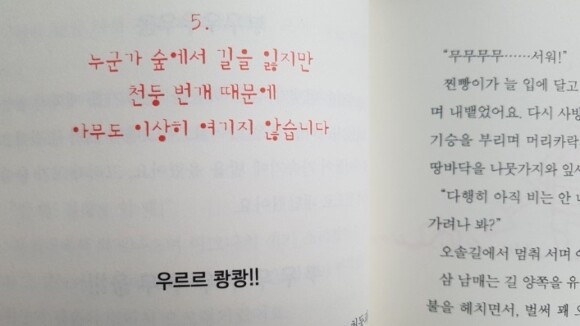 5.
누군가 숲에서 길을 잃지만
천둥 번개 때문에
아무도 이상히 여기지 않습니다
우르르 쾅쾅!!
“무무무무……서워!”
찐빵이가 늘 입에 달고
며 내뱉었어요. 다시 사방
기승을 부리며 머리카락
땅바닥을 나뭇가지와 잎사
“다행히 아직 비는 안 나
가려나 봐?”
오솔길에서 멈춰 서며
삼 남매는 길 양쪽을 유
불을 헤치면서, 벌써 꽤 오